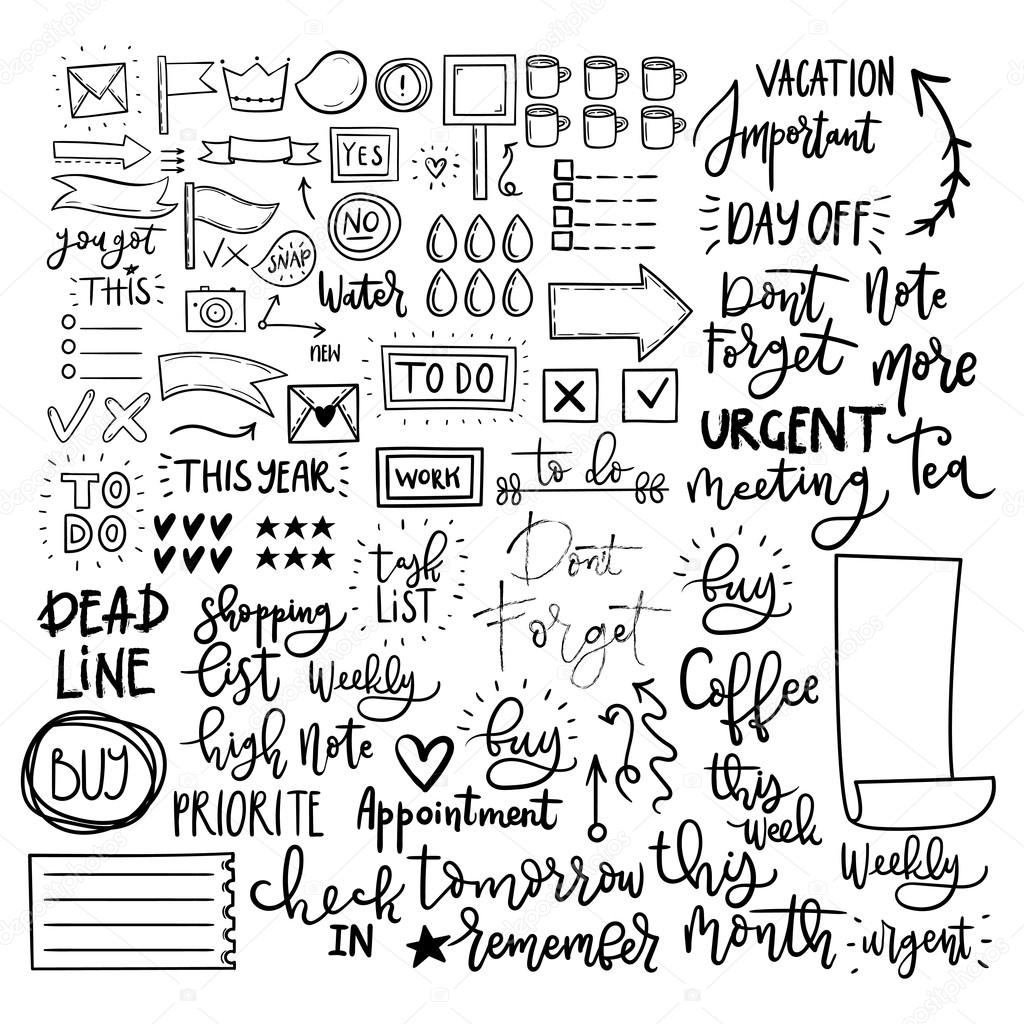 VACATION
Important
YES
NO
DAY OFF
you got
THIS
SNAP
Water
Don't
Forget
Note
NEW
More
TO DO
URGENT
Tea
to do
THIS YEAR
WORK
meeting
TO
DO
Don't
Forget
task
LIST
buy
DEAD
LINE
shopping
list
Weekly
Coffee
high Note
buy
BUY
this
week
PRIORITE
Appointment
Weekly
check
IN
tomorrow
this
month
remember
urgent
depositphotos